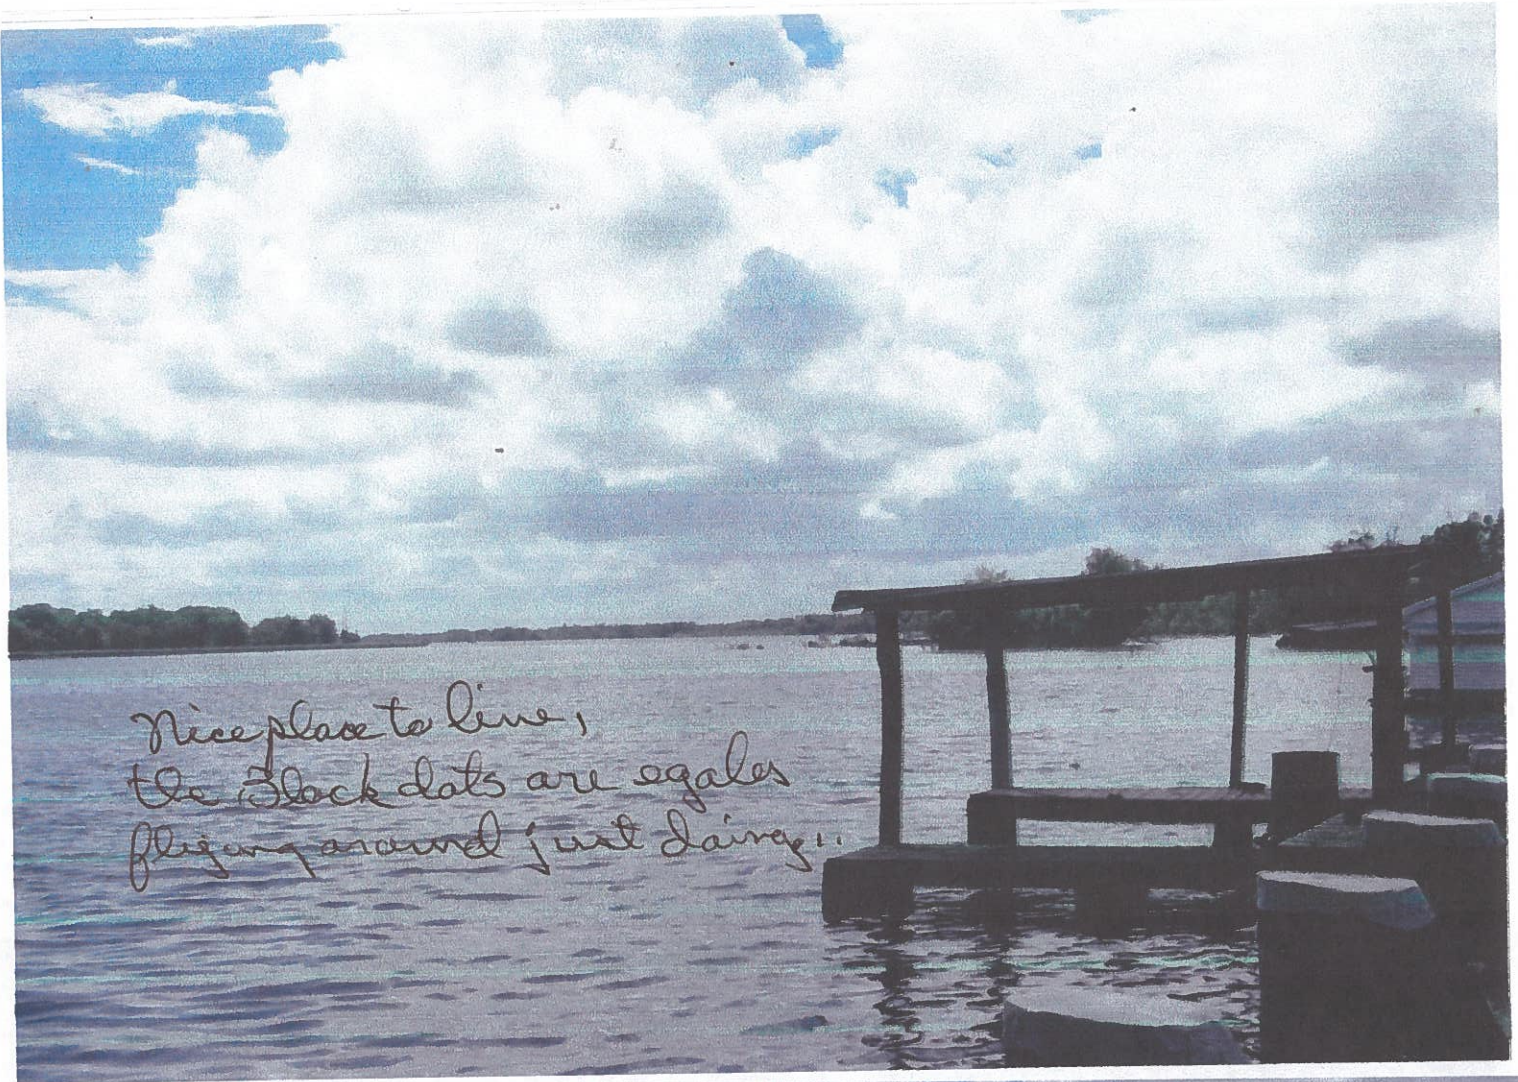 Nice place to live,
the Black dots are egales
flying around just doing,..